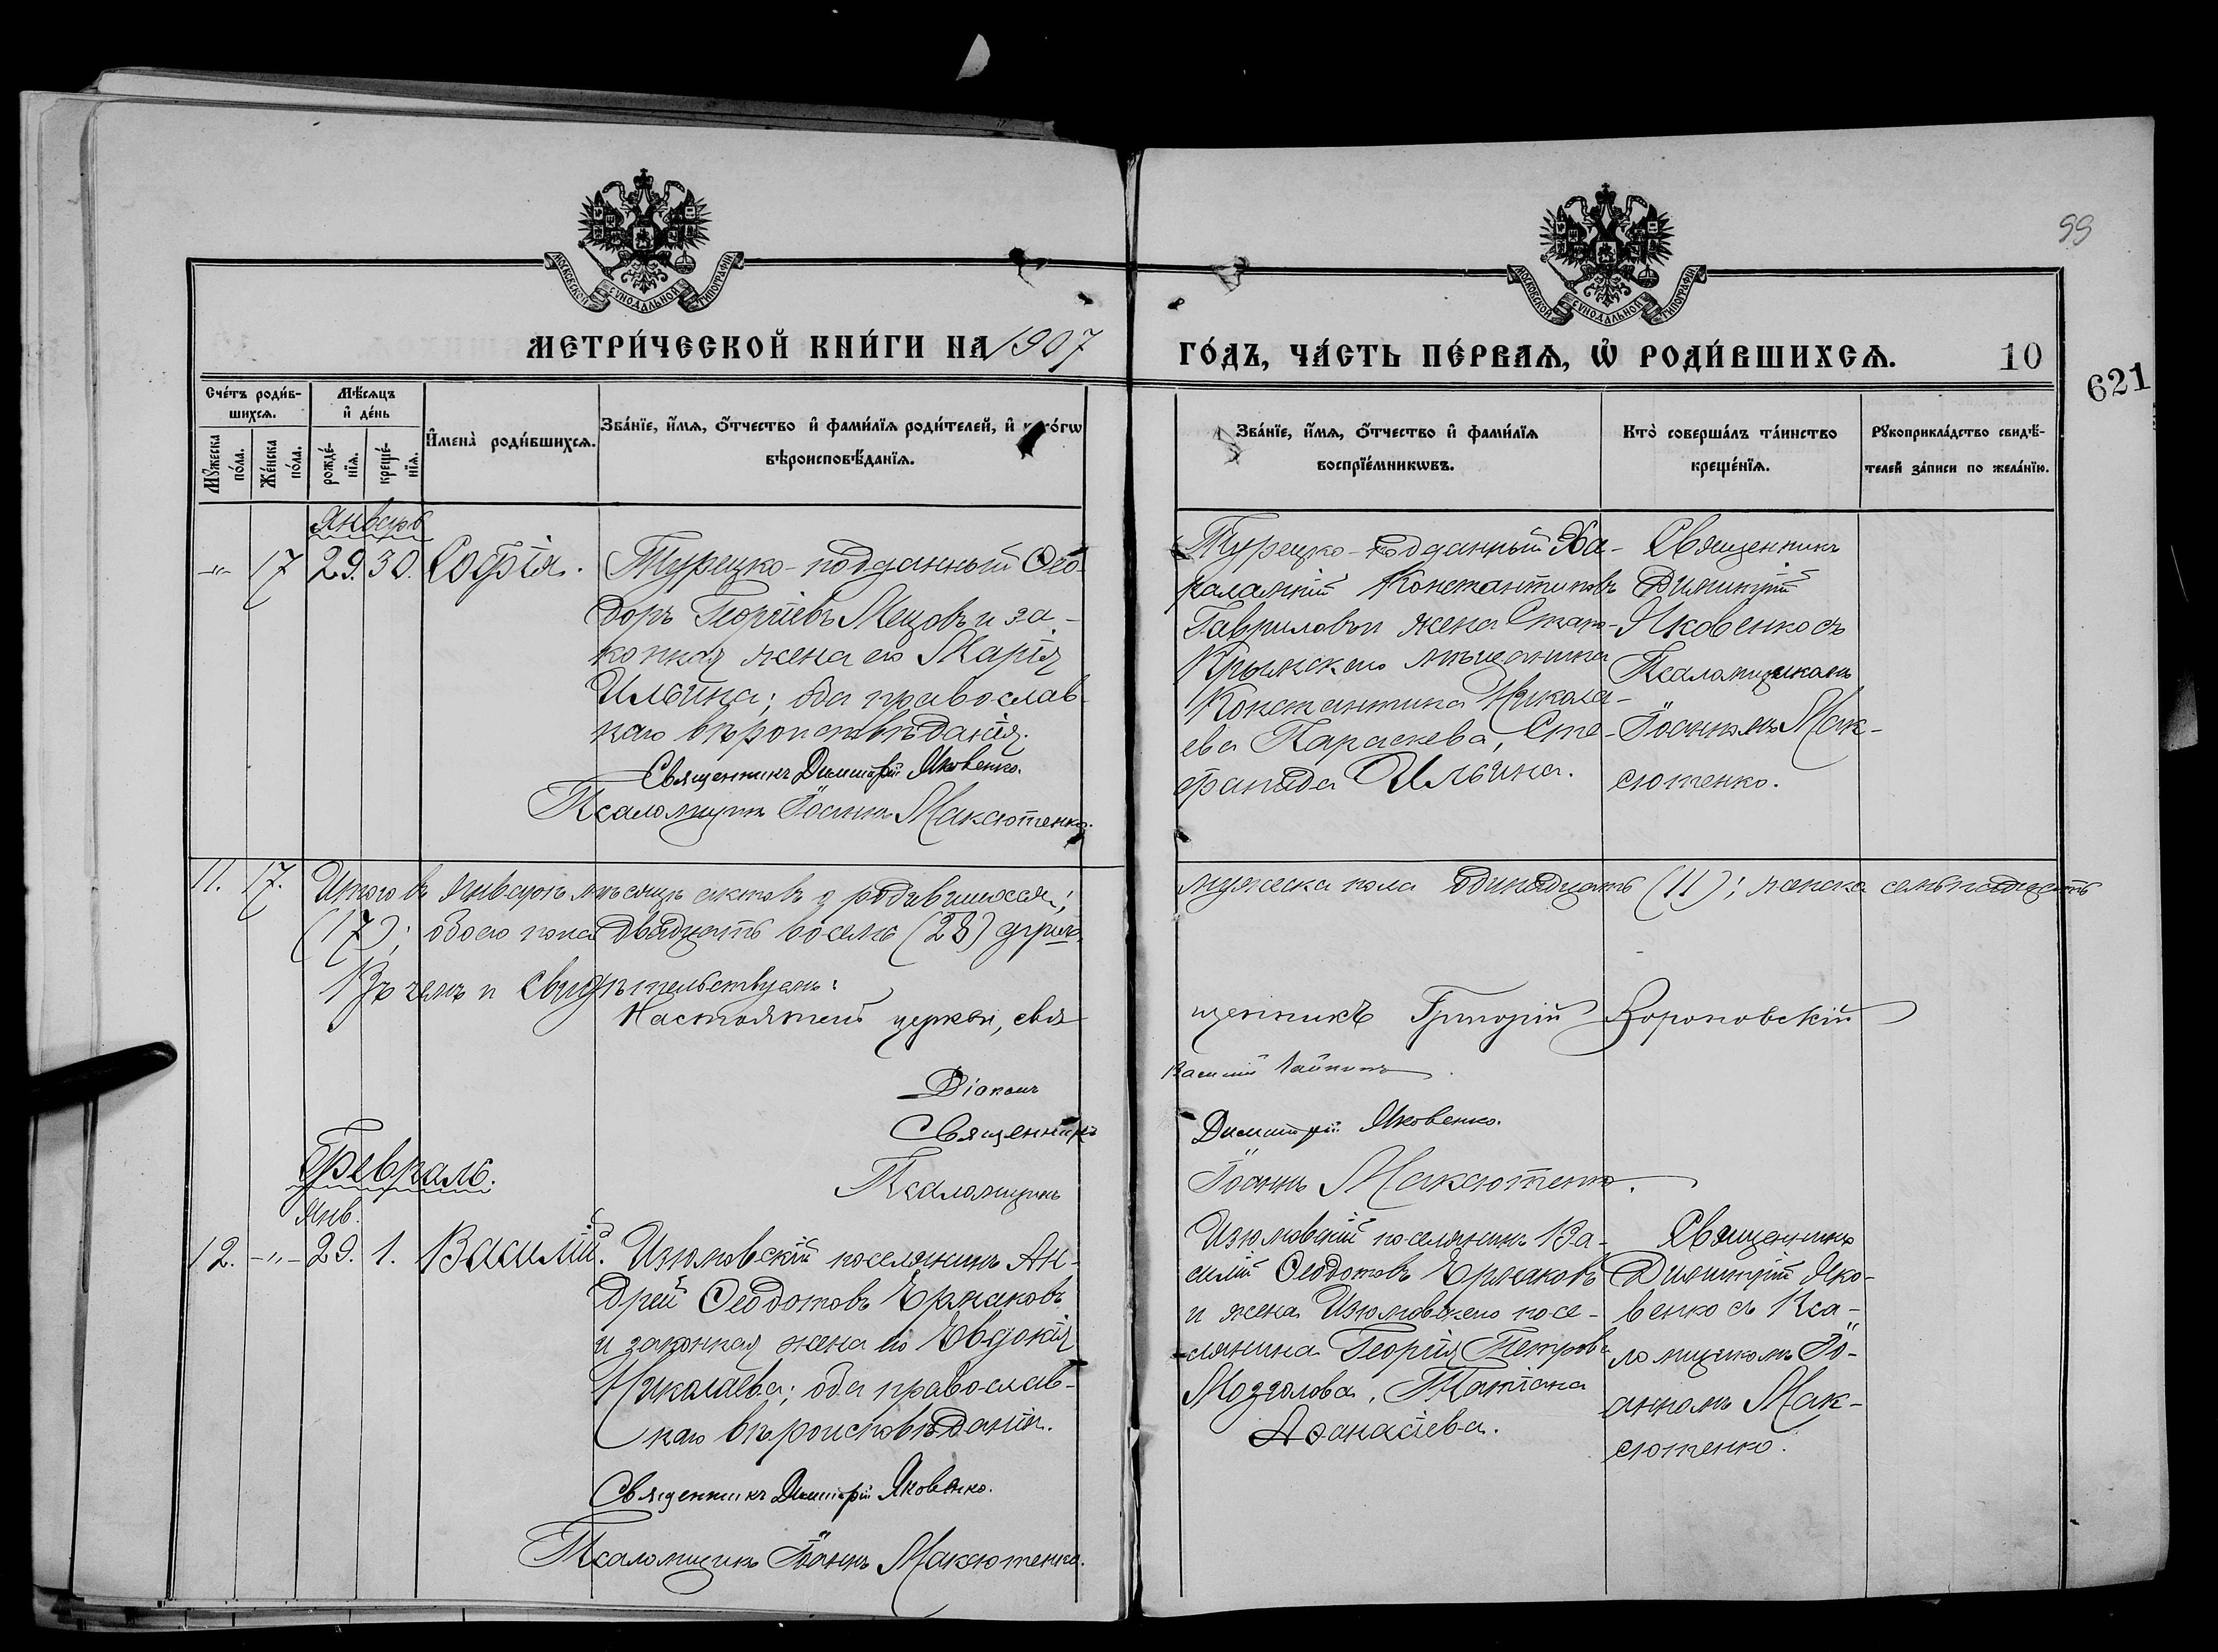 99
МОСКОВСКОЙ СѴНОДАЛЬНОЙ ТИПОГРАФІИ
МОСКОВСКОЙ СѴНОДАЛЬНОЙ ТИПОГРАФІИ
МЕТРИ́ЧЕСКОЙ КНИ́ГИ НА 1907
ГО́ДЪ, ЧА́СТЬ ПЕ́РВАѦ, Ѡ҆ РОДИ́ВШИХСѦ.
10
621
Сче́тъ роди́в-
шихсѧ.
Мꙋ́жеска по́ла.
Же́нска по́ла.
Мѣ́сѧцъ
и҆ де́нь
рожде́-
нїѧ.
креще́-
нїѧ.
И҆мена̀ роди́вшихсѧ.
Зва́нїе, и҆́мѧ, ѻ҆́тчество и҆ фами́лїѧ роди́телей, и҆ како́гѡ
вѣроисповѣ́данїѧ.
Зва́нїе, и҆́мѧ, ѻ҆́тчество и҆ фами́лїѧ
воспрїе́мникѡвъ.
Кто̀ соверша́лъ та́инство
креще́нїѧ.
Рꙋкоприкла́дство свидѣ́-
телей за́писи по жела́нїю.
Январь
-"- 17 29. 30. Софія.
Турецко-подданный Ѳео-
доръ Георгіевъ Мецовъ и за-
конная жена его Марія
Ильина; оба православ-
наго вѣроисповѣданія.
Священникъ Димитрій Яковенко.
Псаломщикъ Іоаннъ Максютенко.
Турецко-подданный Ха-
ралампій Константиновъ
Гавриловъ и жена Старо-
Крымскаго мѣщанина
Константина Никола-
ева Параскева, Сте-
фанида Ильина.
Священникъ
Димитрій
Яковенко съ
Псаломщикомъ
Іоанномъ Мак-
сютенко.
11. 17. Итого въ Январѣ мѣсяцѣ актовъ о родившихся;
мужеска пола одинадцать (11); женска семьнадцать
(17); обоего пола двадцать восемь (28) душъ.
Въ чемъ и свидѣтельствуемъ:
Настоятель церкви, свя-
щенникъ Григорій Вороновскій
Діаконъ
Василій
Священникъ
Димитрій Яковенко.
Псаломщикъ
Іоаннъ Максютенко.
Февраль.
Янв.
12. -"- 29. 1. Василій.
Изюмовскій поселянинъ Ан-
дрей Ѳеодотовъ Ермаковъ
и законная жена его Евдокія
Николаева; оба православ-
наго вѣроисповѣданія.
Священникъ Димитрій Яковенко.
Псаломщикъ Іоаннъ Максютенко.
Изюмовскій поселянинъ Ва-
силій Ѳеодотовъ Ермаковъ
и жена Изюмовскаго посе-
лянина Георгія Петрова
Мозголова, Татіана
Аѳанасіева.
Священникъ
Димитрій Яко-
венко съ Пса-
ломщикомъ Іо-
анномъ Мак-
сютенко.